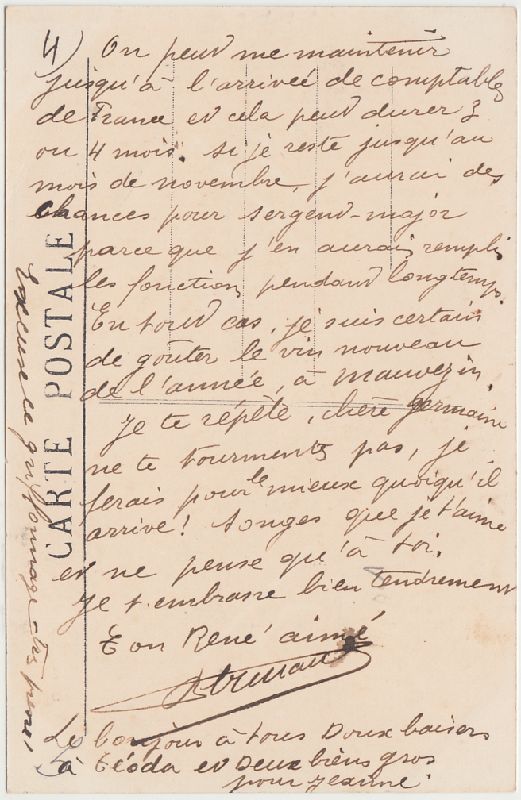 4)
On peut me maintenir
jusqu'à l'arrivée de comptables
de France et cela peut durer 3
ou 4 mois. Si je reste jusqu'au
mois de novembre, j'aurai des
chances pour sergend-major
parce que j'en aurais rempli
les fonctions pendant longtemps.
En tout cas, je suis certain
de goûter le vin nouveau
de l'année, à Mauvezin.
Je te répète, chère Germaine
ne te tourmente pas, je
ferais pour le mieux quoiqu'il
arrive! Songes que je t'aime
et ne pense qu'à toi.
Je t'embrasse bien tendrement
Ton René aimé
Le bonjour à tous Doux baisers
à Téoda et Deux biens gros
pour Jeanne.
Excuse ce griffonnage très
CARTE POSTALE